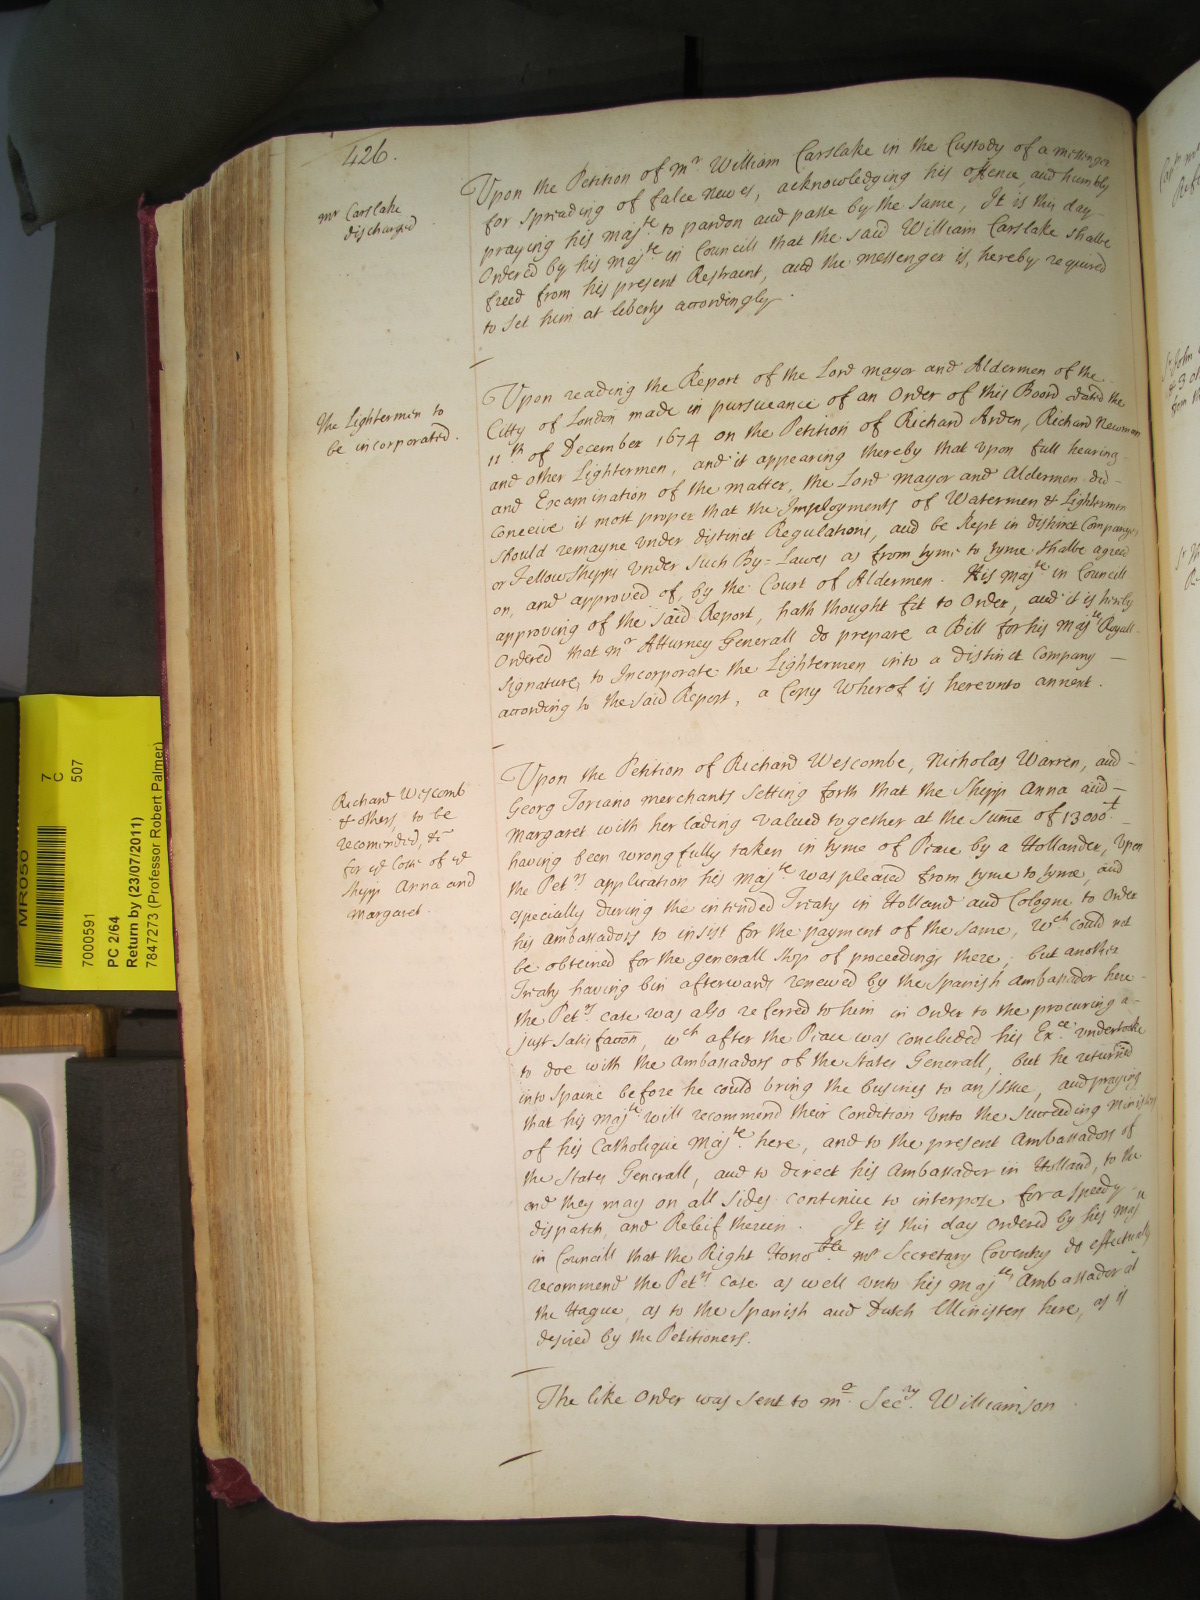 426.
mr Carslake
discharged
Upon the Petition of mr William Carslake in the Custody of a messenger
for spreading of false newes, acknowledging his offence, and humbly
praying his Majte to pardon and passe by the same, It is this day
Ordered by his Majte in Councill that the said William Carslake shalbe
freed from his present Restraint, and the messenger is, hereby required
to set him at liberty accordingly.
The Lightermen to
be incorporated.
Upon reading the Report of the Lord mayor and Aldermen of the
Citty of London made in pursueance of an Order of this Board dated the
11th of December 1674 on the Petition of Richard Arden, Richard Newman
and other Lightermen, and it appearing thereby that upon full hearing
and Examination of the matter, the Lord mayor and Aldermen did
conceive it most proper that the Imployments of Watermen & Lightermen
should remayne under distinct Regulations, and be kept in distinct Companyes
or Fellowshipps under such By=Lawes as from tyme to tyme shalbe agreed
on, and approved of, by the Court of Aldermen. His Majte in Councill
approving of the said Report, hath thought fit to Order, and it is hereby
Ordered that mr Atturney Generall do prepare a Bill for his Majtes Royall
Signature, to Incorporate the Lightermen into a distinct Company
according to the said Report, a Copy wherof is hereunto annext.
Richard Wescomb
& others, to be
recomended, &c
for ye losse of ye
shipp Anna and
Margaret.
Upon the Petition of Richard Wescombe, Nicholas Warren, and
Georg Toriano merchants setting forth that the Shipp Anna and
Margaret with her lading valued together at the sume of 13000l
having been wrongfully taken in tyme of Peace by a Hollander, Upon
the Petrs application his Majte was pleased from tyme to tyme, and
especially during the intended Treaty in Holland and Cologne to Order
his Ambassadors to insist for the payment of the same, wch could not
be obteined for the generall stop of proceedings there; but another
Treaty having bin afterwards renewed by the Spanish Ambassador here
the Petrs case was also referred to him in Order to the procuring a
just satisfaccon, wch after the Peace was concluded his Exce undertooke
to doe with the Ambassadors of the States Generall, but he returned
into Spaine before he could bring the busines to an issue, and praying
that his Majte will recommend their Condition unto the succeeding Ministers
of his Catholique Majte here, and to the present Ambassadors of
the States Generall, and to direct his Ambassador in Holland, to the
end they may on all sides continue to interpose for a speedy
dispatch, and Releif therein. It is this day Ordered by his Majte
in Councill that the Right Honoble mr Secretary Coventry do effectually
recommend the Petrs case as well unto his Majtes Ambassador at
the Hague, as to the Spanish and Dutch Ministers here, as is
desired by the Petitioners.
The like Order was sent to mr Secry Williamson
MR050
7
C
507
7000591
PC 2/64
Return by (23/07/2011)
7847273 (Professor Robert Palmer)